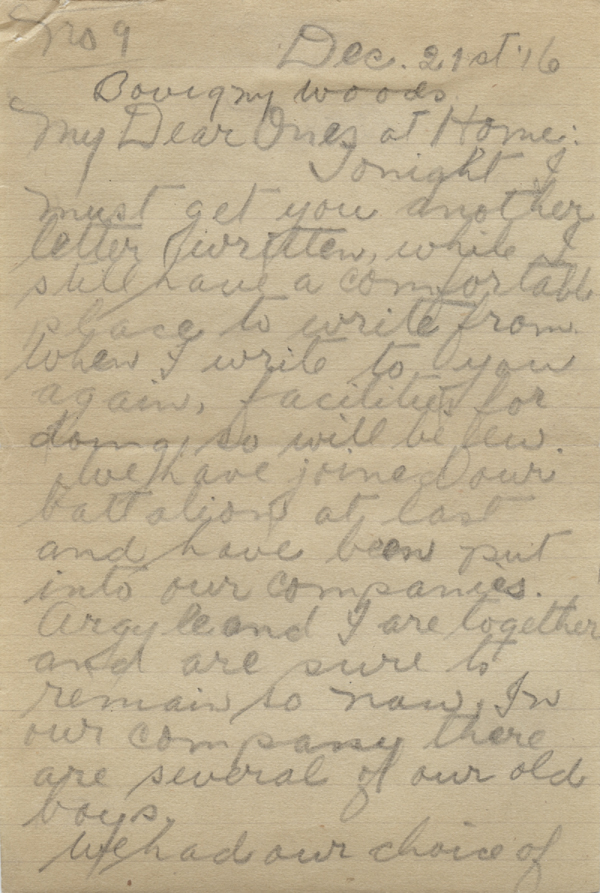 No 9
Dec. 21st '16
Bovigny Woods
My Dear Ones at Home:
Tonight I
must get you another
letter written, while I
still have a comfortable
place to write from.
When I write to you
again, facilities for
doing so will be few.
We have joined our
battalion at last
and have been put
into our companies.
Argyle and I are together
and are sure to
remain so now. In
our company there
are several of our old
boys.
We had our choice of